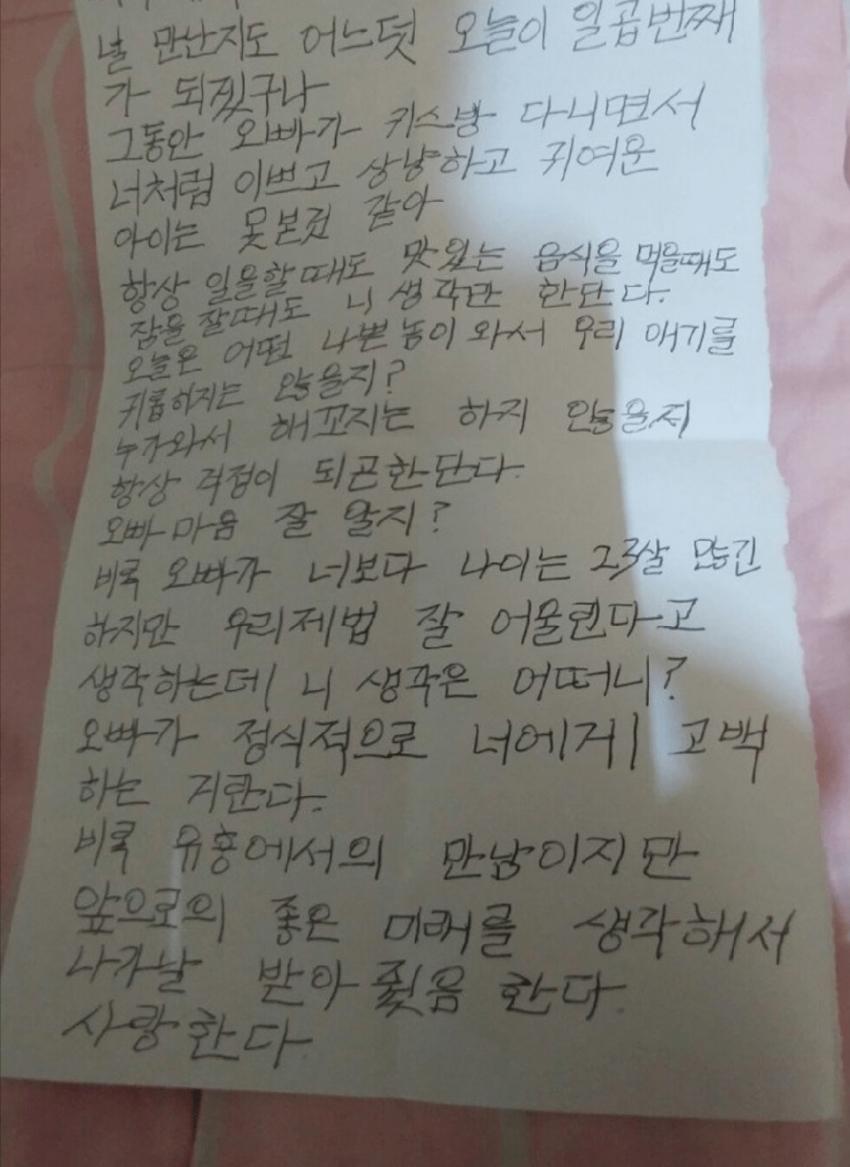 널 만난지도 어느덧 오늘이 일곱번째
가 되겠구나
그동안 오빠가 키스방 다니면서
너처럼 이쁘고 상냥하고 귀여운
아이는 못본것 같아
항상 일을할때도 맛있는 음식을 먹을때도
잠을 잘때도 니 생각만 한단다.
오늘은 어떤 나쁜놈이 와서 우리 애기를
귀롭히지는 않을지?
누가와서 해꼬지는 하지 않을지
항상 걱정이 되곤한단다.
오빠 마음 잘 알지?
비록 오빠가 너보다 나이는 23살 많긴
하지만 우리제법 잘 어울린다고
생각하는데 니 생각은 어떠니?
오빠가 정식적으로 너에게 고백
하는 거란다.
비록 유흥에서의 만남이지만
앞으로의 좋은 미래를 생각해서
나가날 받아줬음 한다.
사랑한다.